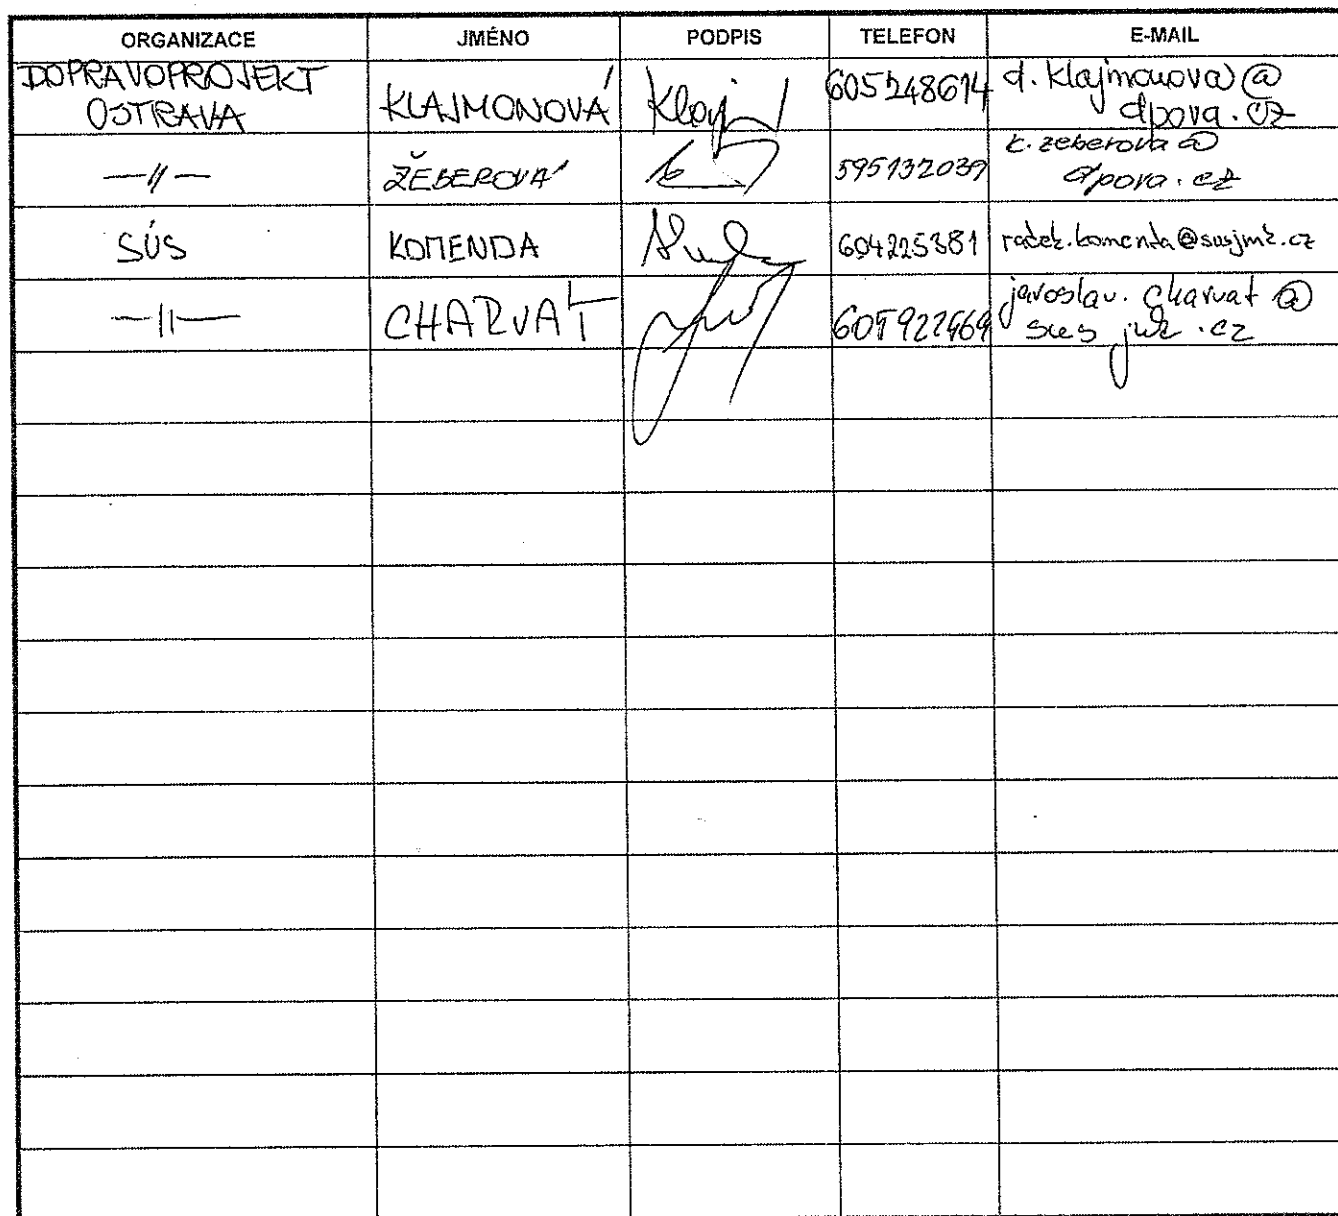 ORGANIZACE JMÉNO PODPIS TELEFON E-MAIL
DOPRAVOPROJEKT
OSTRAVA KLAJMONOVÁ 605248614 d.klajmonova@
dpova.cz
—〃— ŽEBEROVÁ 595132039 k.zeberova@
dpova.cz
SÚS KOMENDA 604225381 radek.komenda@susjmk.cz
—〃— CHARVAT 605922469 jaroslav.charvat@
susjmk.cz